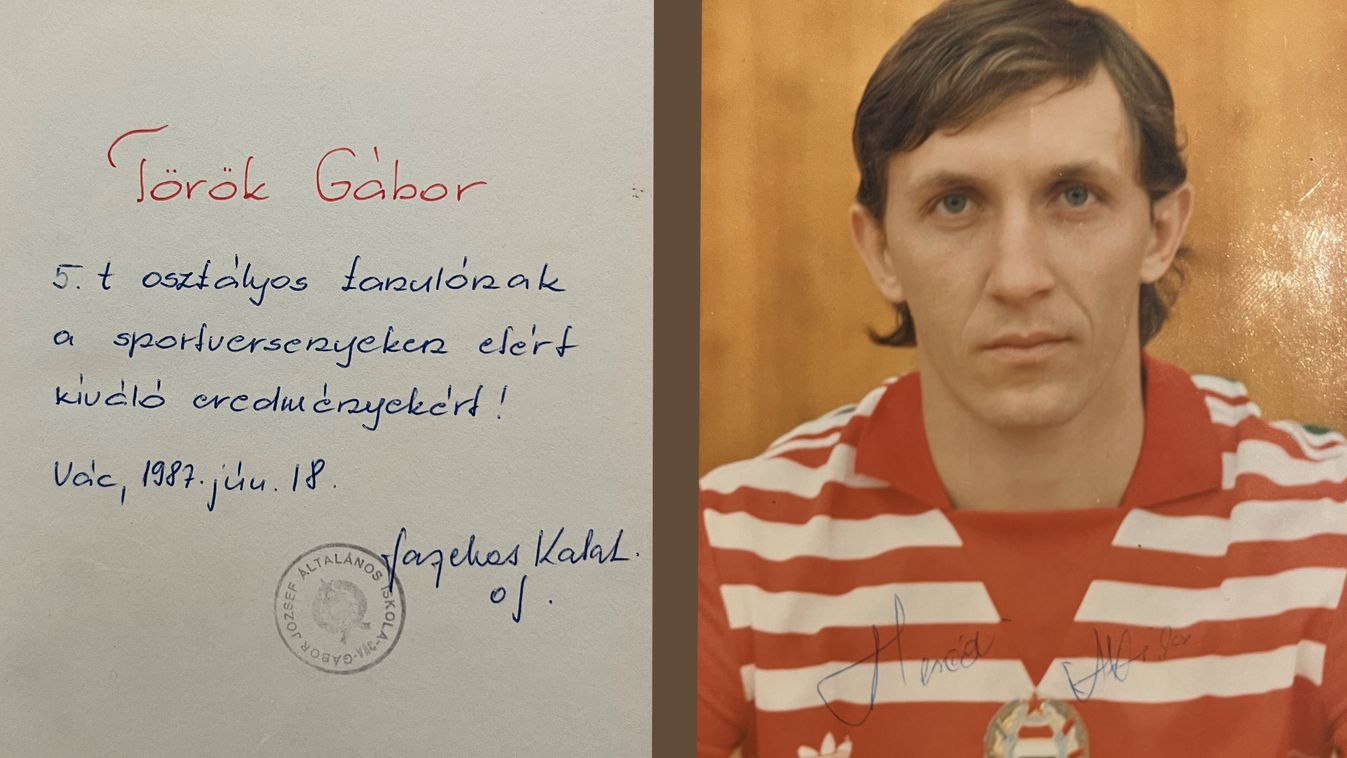 Török Gábor
5. t osztályos tanulónak
a sportversenyeken elért
kiváló eredményekért!
Vác, 1987. jún. 18.
Fazekas Katal.
of.
GÁBOR JÓZSEF ÁLTALÁNOS ISKOLA